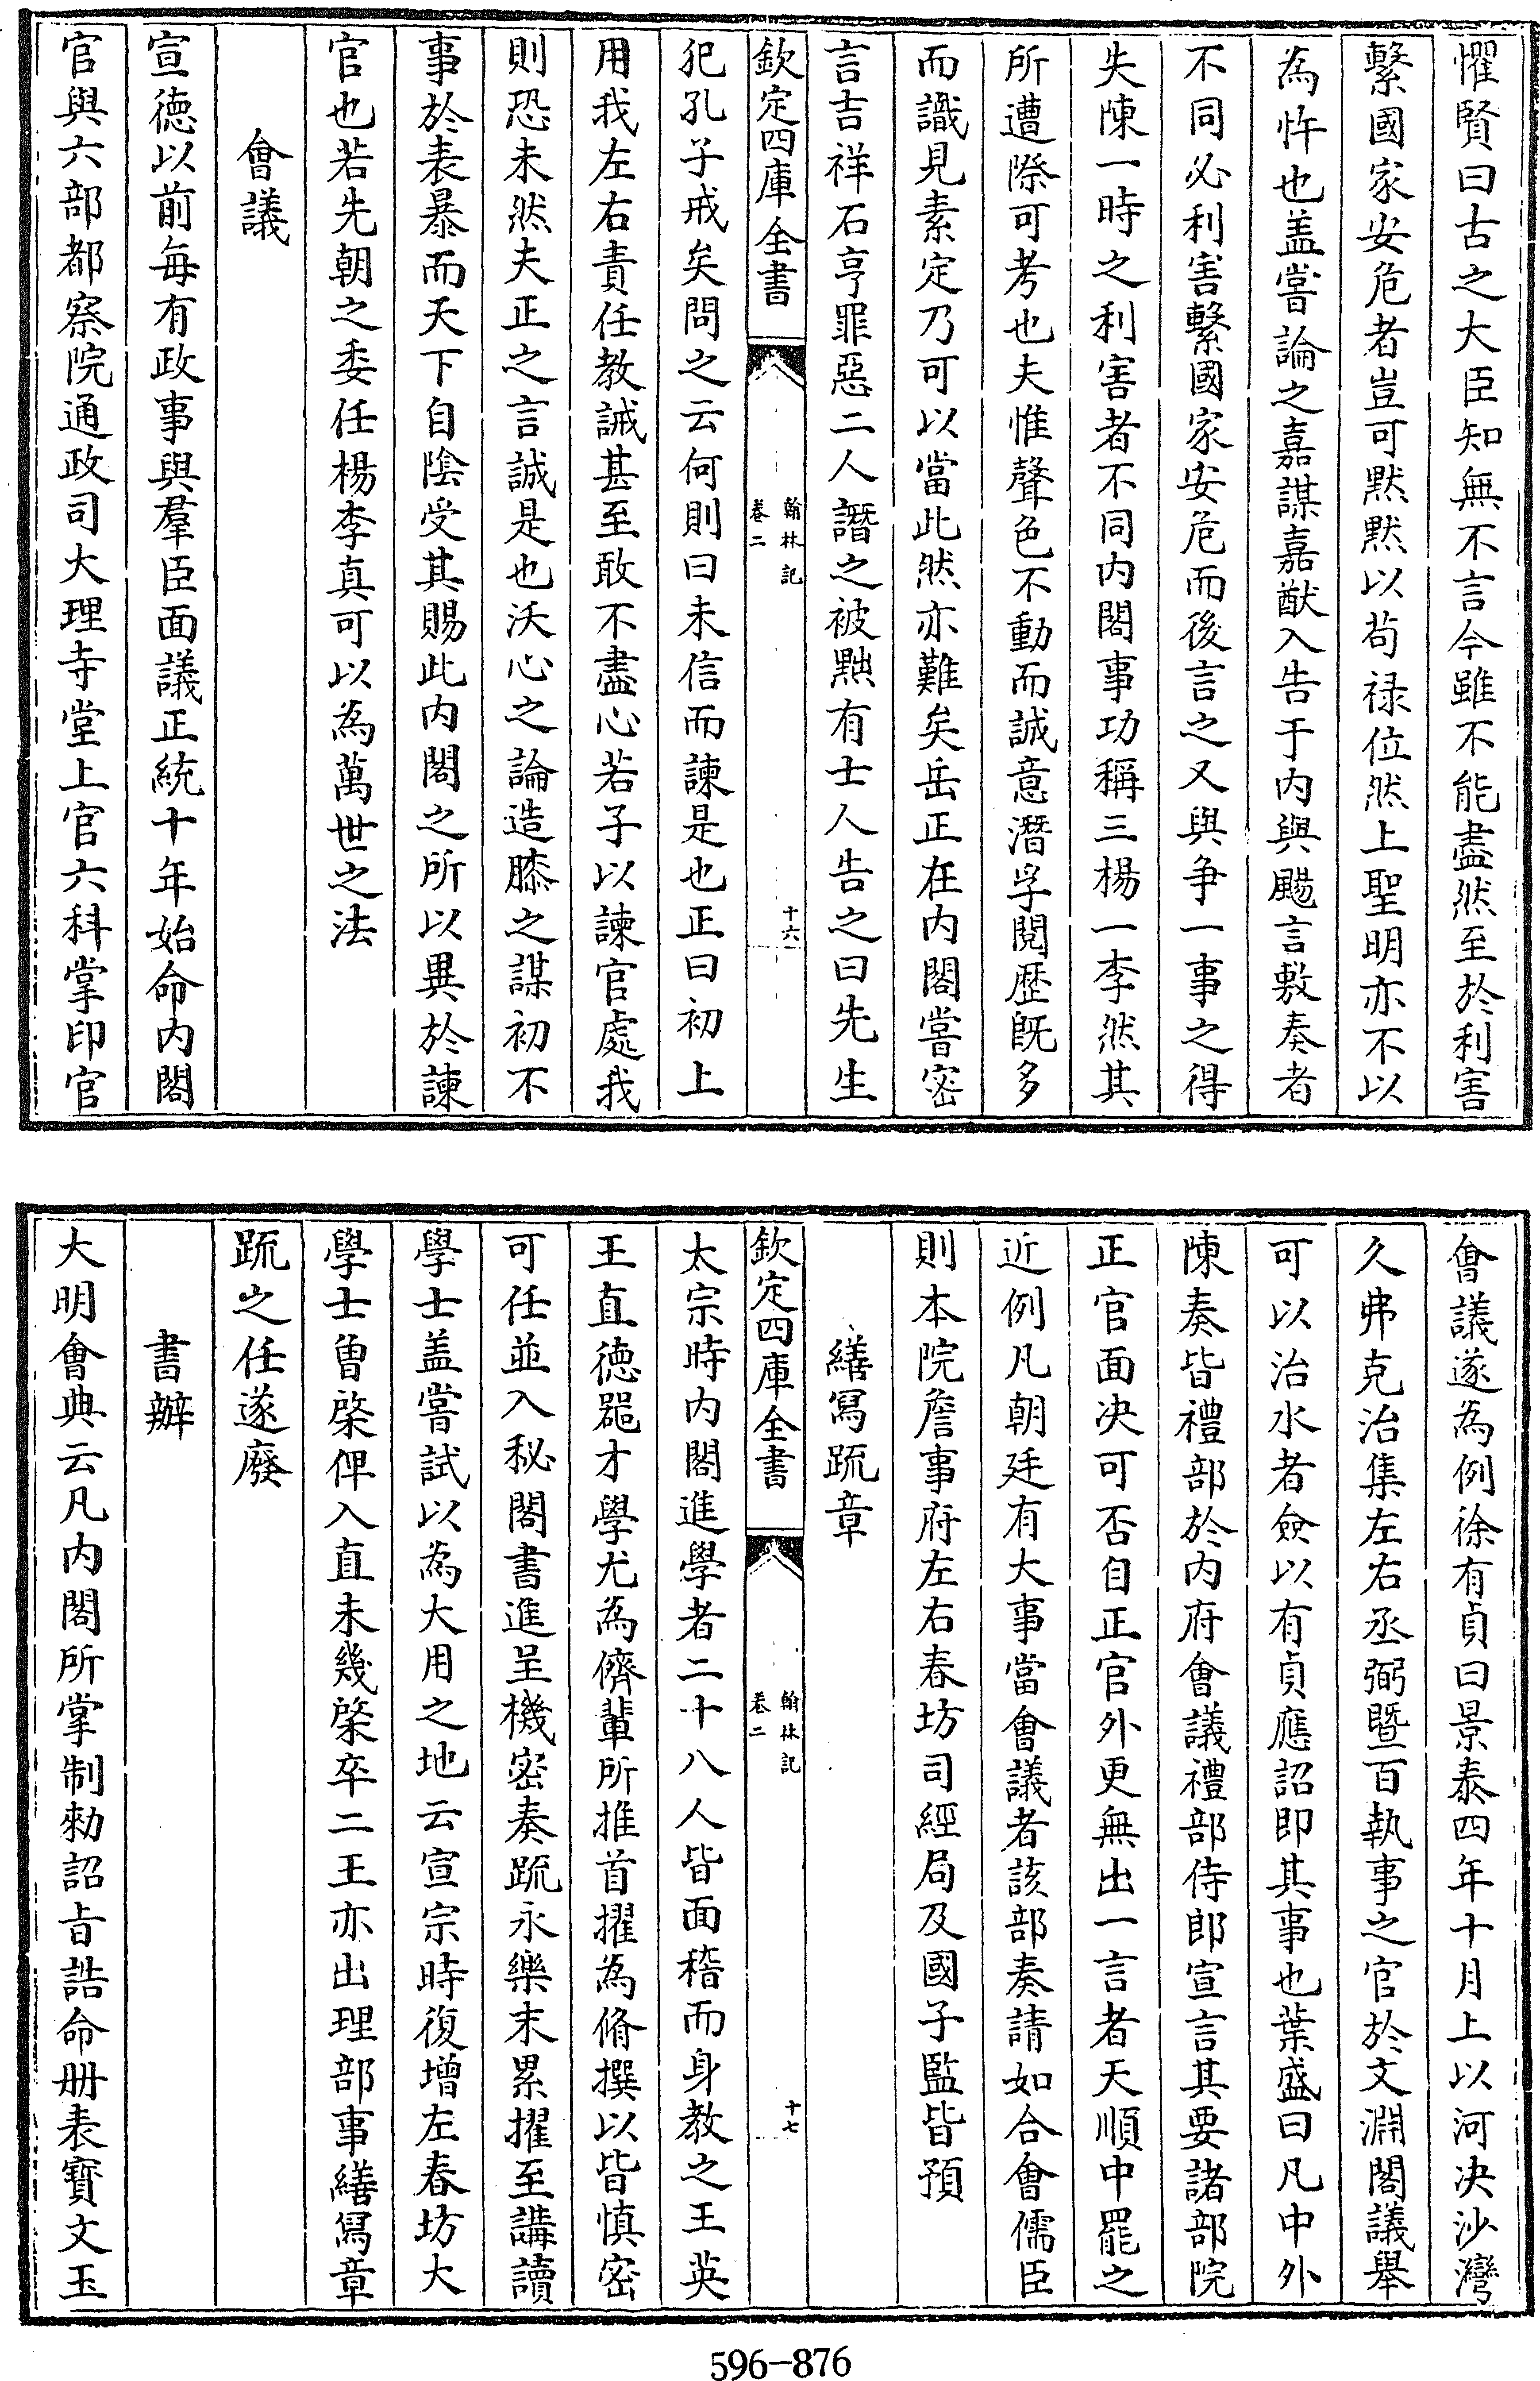 懼賢曰古之大臣知無不言今雖不能盡然至於利害
繫國家安危者豈可默默以苟禄位然上聖明亦不以
為忤也盖嘗論之嘉謀嘉猷入告于内與颺言敷奏者
不同必利害繫國家安危而後言之又與争一事之得
失陳一時之利害者不同内閣事功稱三楊一李然其
所遭際可考也夫惟聲色不動而誠意潛孚閲歴既多
而識見素定乃可以當此然亦難矣岳正在内閣嘗密
言吉祥石亨罪惡二人譖之被黜有士人告之曰先生
欽定四庫全書
翰林記
卷二
十六
犯孔子戒矣問之云何則曰未信而諫是也正曰初上
用我左右責任教誡甚至敢不盡心若子以諫官處我
則恐未然夫正之言誠是也沃心之論造膝之謀初不
事於表暴而天下自陰受其賜此内閣之所以異於諫
官也若先朝之委任楊李真可以為萬世之法
會議
宣徳以前每有政事與羣臣面議正統十年始命内閣
官與六部都察院通政司大理寺堂上官六科掌印官
會議遂為例徐有貞曰景泰四年十月上以河决沙灣
久弗克治集左右丞弼暨百執事之官於文淵閣議舉
可以治水者僉以有貞應詔即其事也葉盛曰凡中外
陳奏皆禮部於内府會議禮部侍郎宣言其要諸部院
正官面决可否自正官外更無出一言者天順中罷之
近例凡朝廷有大事當會議者該部奏請如合會儒臣
則本院詹事府左右春坊司經局及國子監皆預
繕寫疏章
欽定四庫全書
翰林記
卷二
十七
太宗時内閣進學者二十八人皆面稽而身教之王英
王直徳器才學尤為儕輩所推首擢為脩撰以皆慎密
可任並入秘閣書進呈機密奏疏永樂末累擢至講讀
學士盖嘗試以為大用之地云宣宗時復增左春坊大
學士曾棨俾入直未幾棨卒二王亦出理部事繕寫章
疏之任遂廢
書辦
大明會典云凡内閣所掌制勅詔旨誥命册表寳文玉
596-876